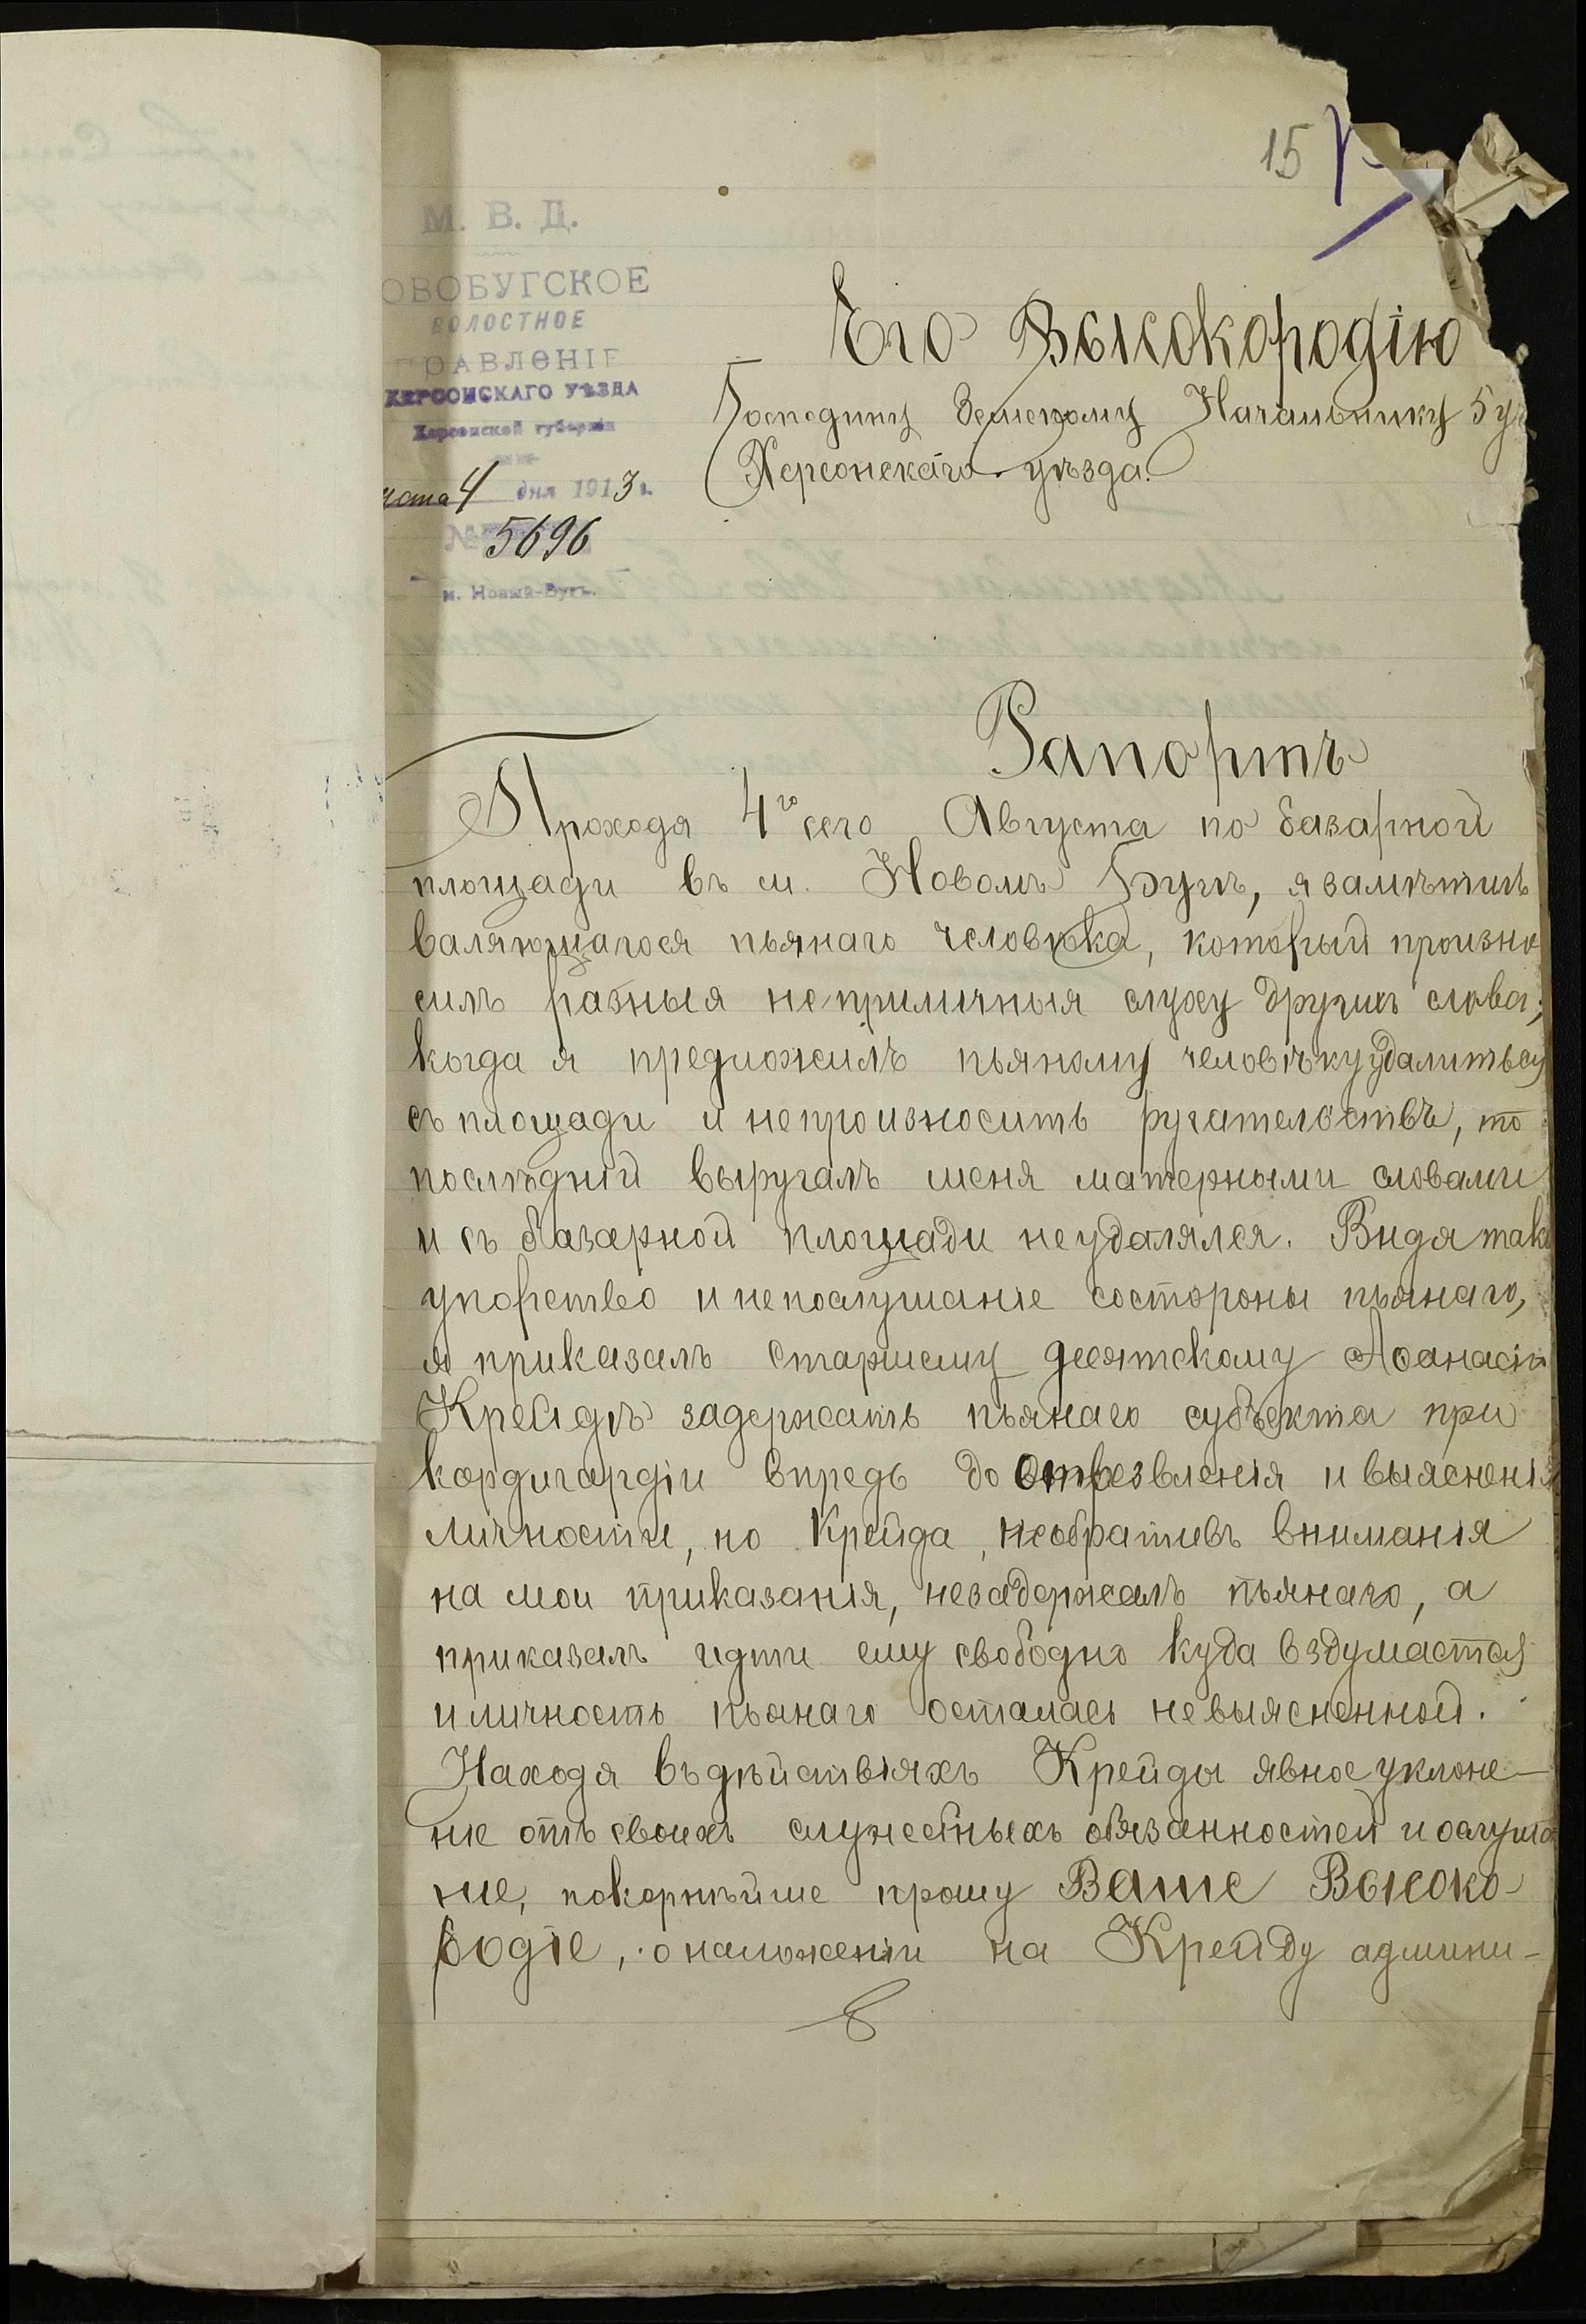 15
М. В. Д.
ОВОБУГСКОЕ
ВОЛОСТНОЕ
ПРАВЛЕНІЕ
ХЕРСОНСКАГО УѢЗДА
Херсонской губерніи
уста 4 дня 1913 г.
№ 5696
м. Новый-Бугъ.
Его Высокородію
Господину Земскому Начальнику 5 уч
Херсонскаго уѣзда.
Рапортъ
Проходя 4го сего Августа по базарной
площади въ м. Новомъ Бугѣ, я замѣтилъ
валяющагося пьянаго человѣка, который произно
силъ разныя неприличныя слуху другихъ слова;
когда я предложилъ пьяному человѣку удалиться
съ площади и непроизносить ругательствъ, то
послѣдній выругалъ меня матерными словами
и съ базарной площади неудалялся. Видя тако
упорство и непослушаніе состороны пьянаго,
я приказалъ старшему десятскому Аѳанасію
Крейдѣ задержать пьянаго субъекта при
кордигардіи впредь до отрезвленія и выясненія
личности, но Крейда, необративъ вниманія
на мои приказанія, незадержалъ пьянаго, а
приказалъ идти ему свободно куда вздумается
и личность пьянаго осталась невыясненной.
Находя въ дѣйствіяхъ Крейды явное уклоне-
ніе отъ своихъ служебныхъ обязанностей и ослуша
ніе, покорнѣйше прошу Ваше Высоко-
родіе, о наложеніи на Крейду админи-